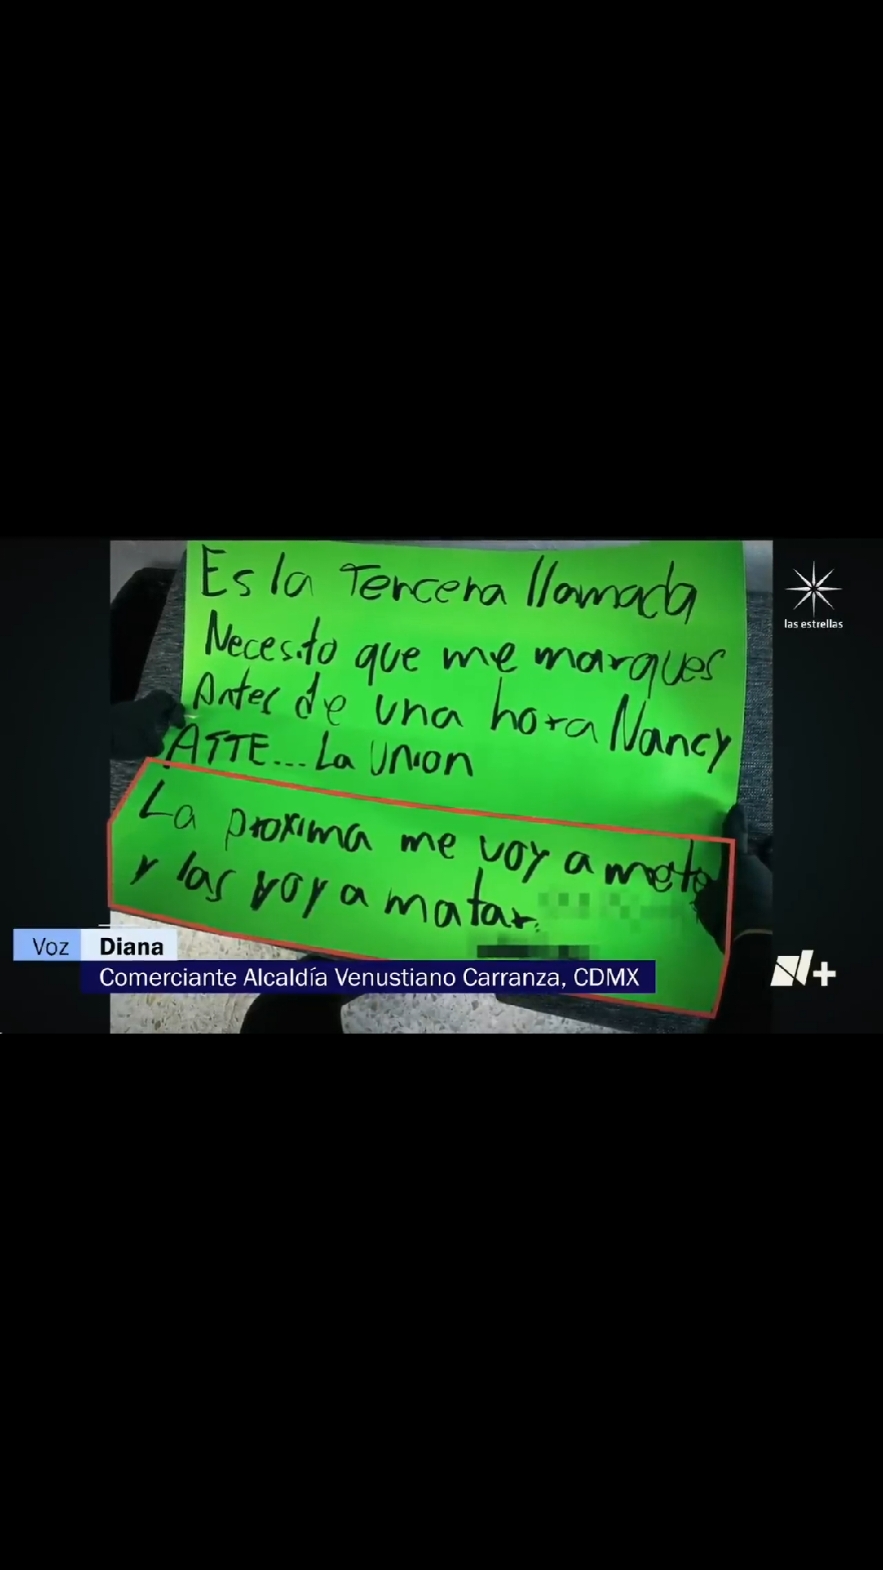 Es la Tercera llamada
las estrellas
Necesito que me marques
Antes de una hora Nancy
ATTE... La Union
La proxima me voy a mete
y las voy a matar.
Voz Diana
Comerciante Alcaldía Venustiano Carranza, CDMX
N+